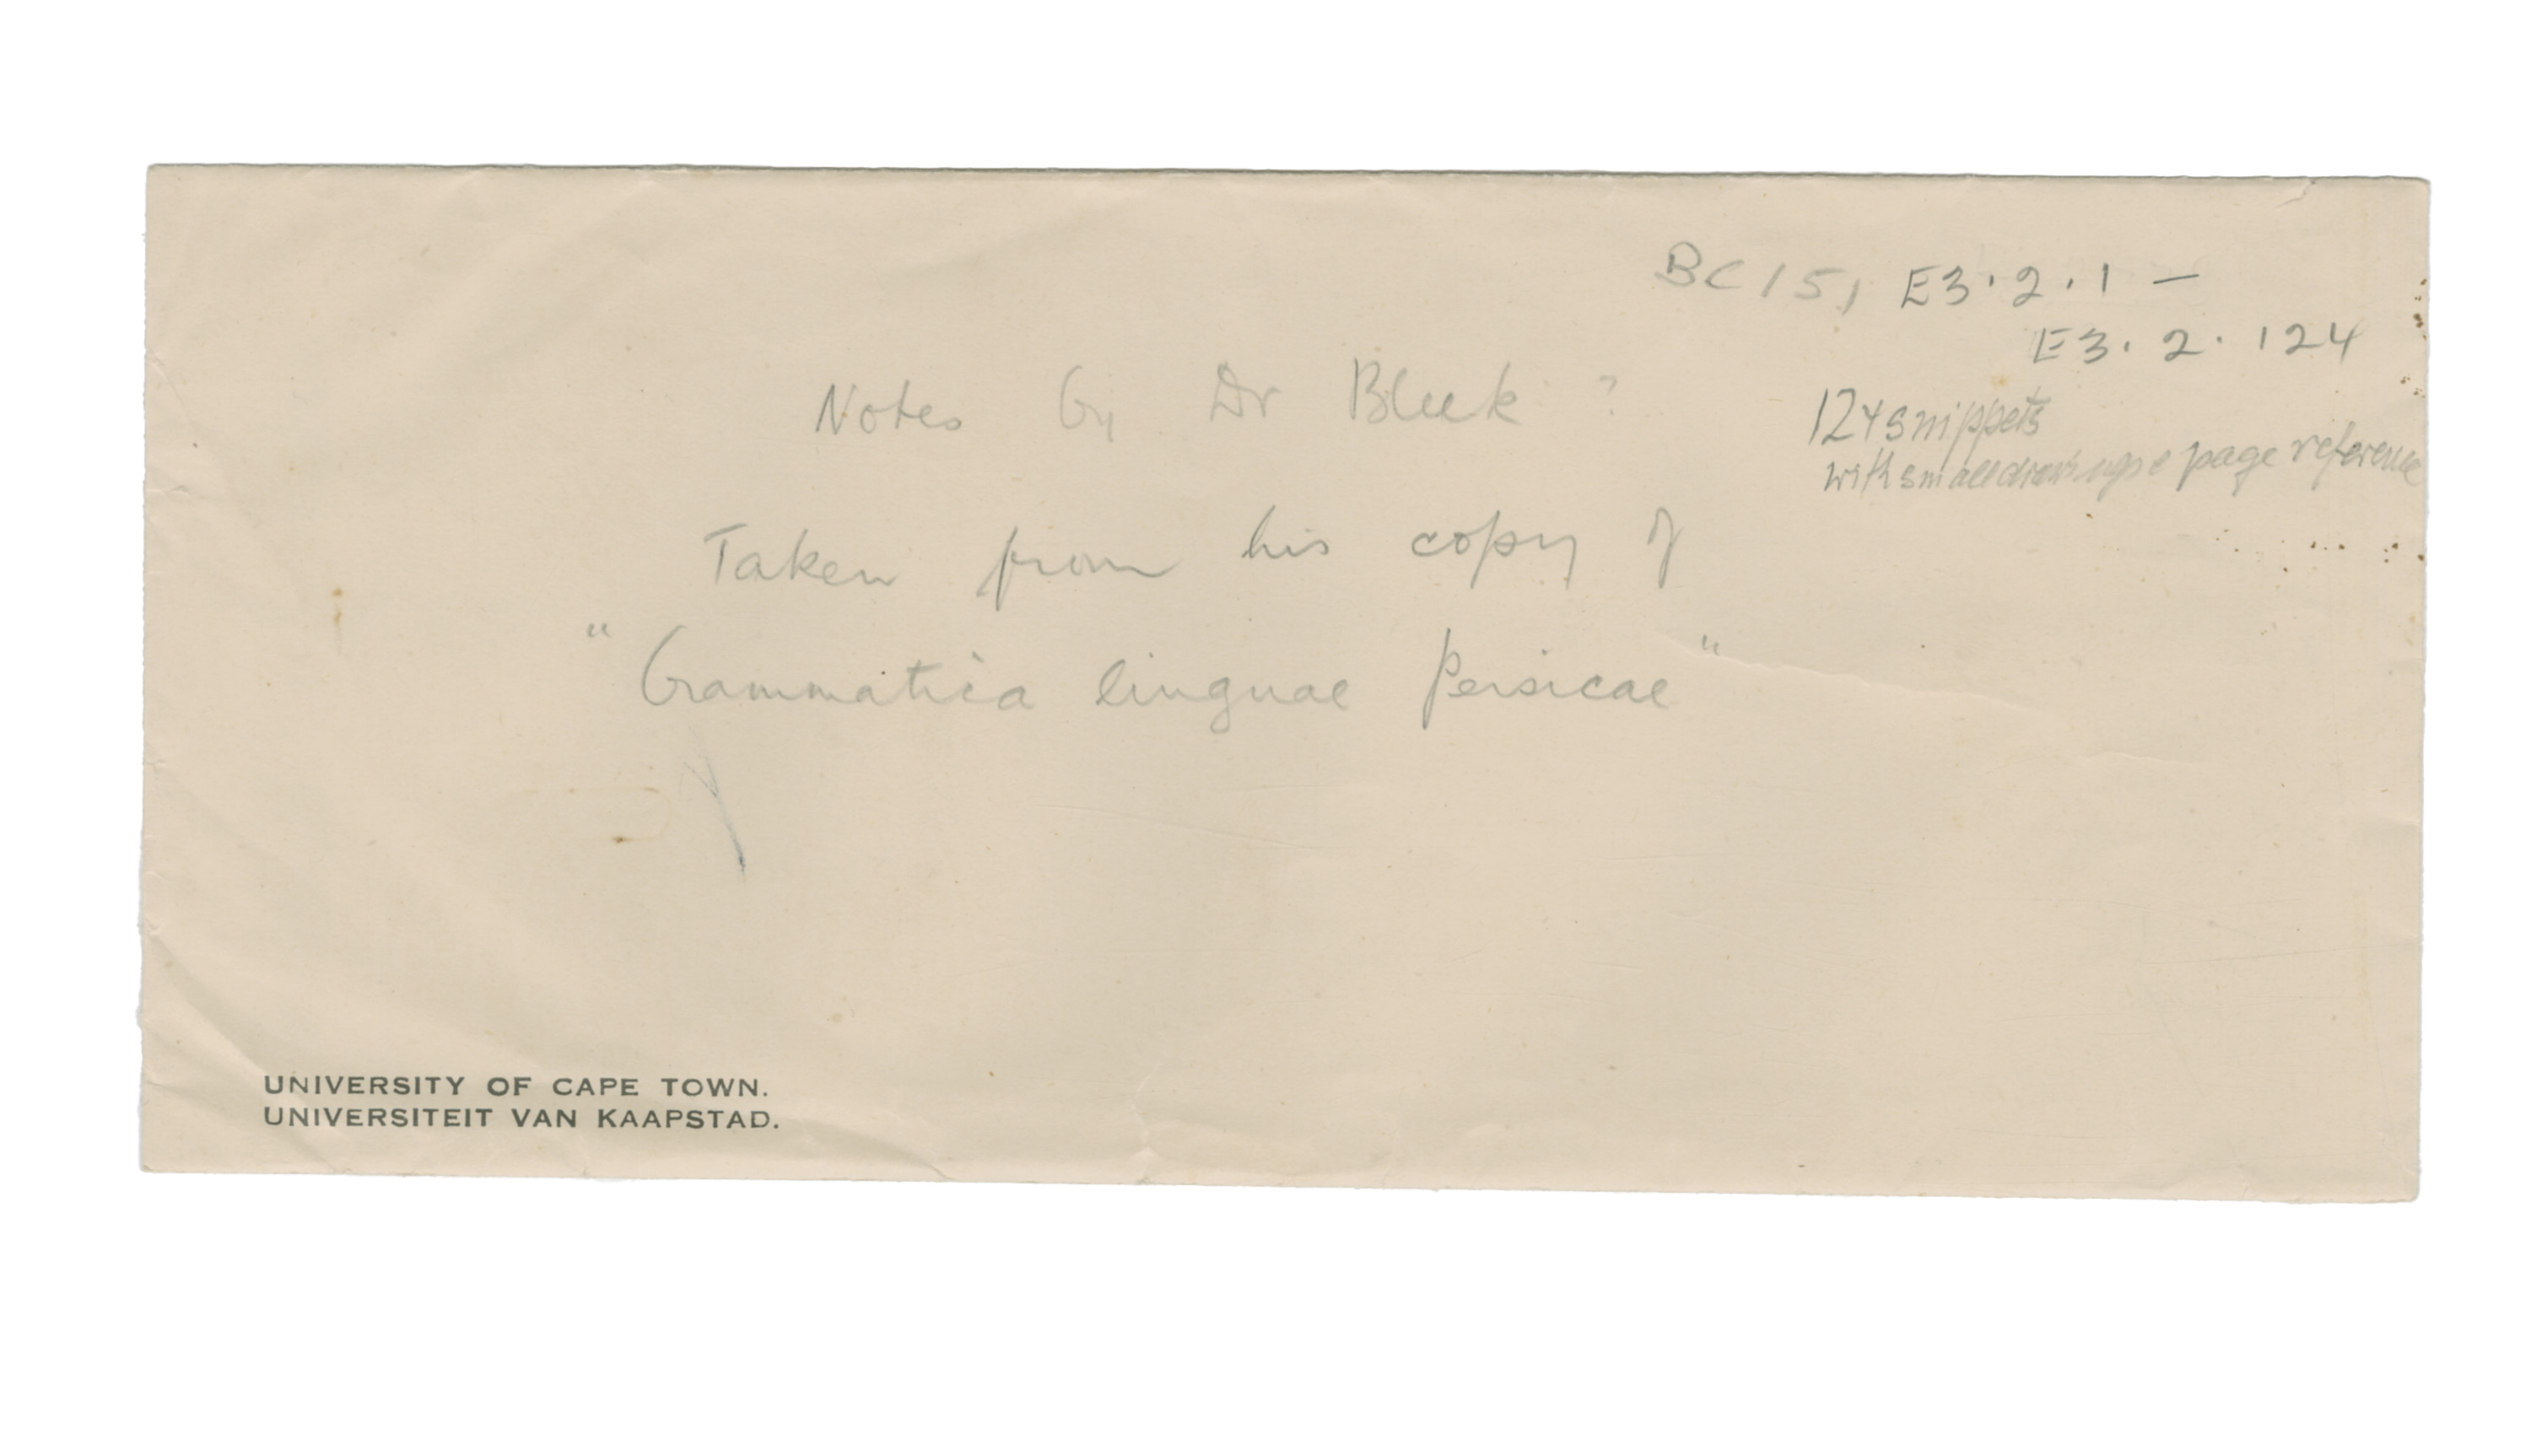 BC 151 E3.2.1 —
E3.2.124
Notes by Dr Bleek ?
124 snippets
with small drawings & page reference
Taken from his copy of
"Grammatica linguae Persicae"
UNIVERSITY OF CAPE TOWN.
UNIVERSITEIT VAN KAAPSTAD.